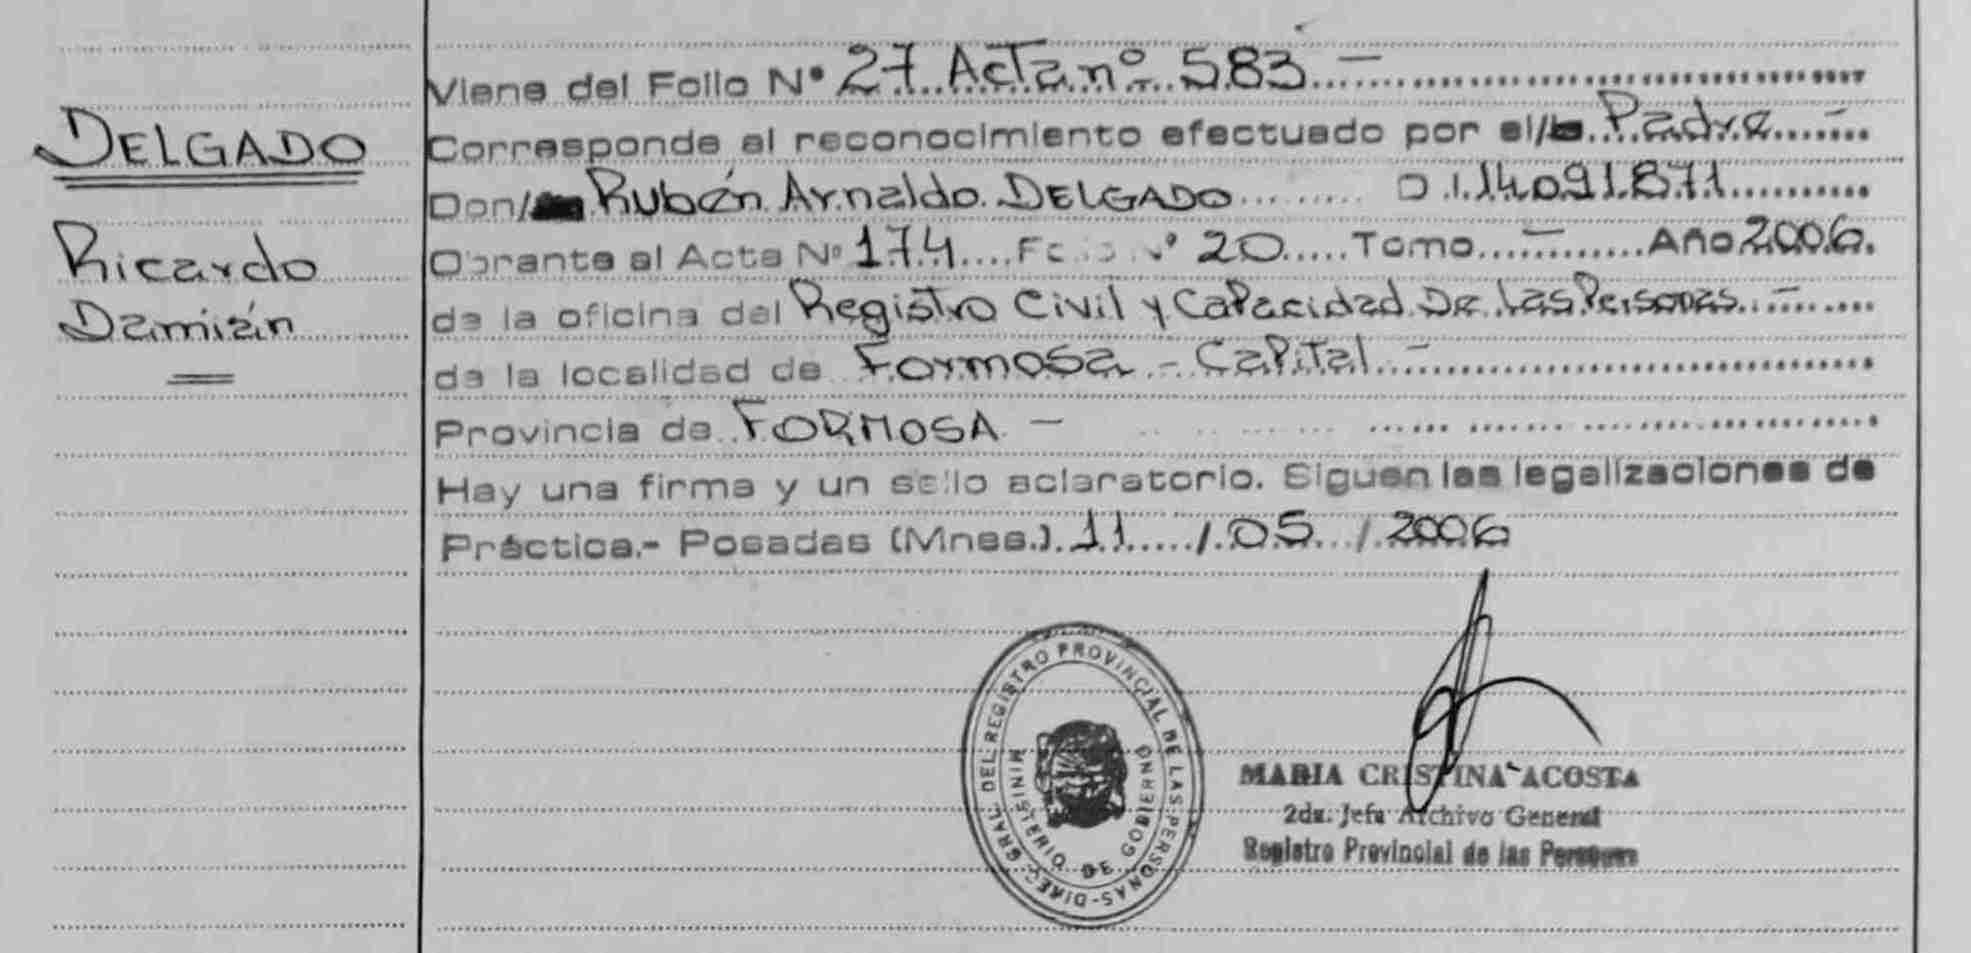 DELGADO
Ricardo
Damián
Viene del Folio N° 27 Acta n° 583 —
Corresponde al reconocimiento efectuado por el/la Padre —
Don/ Rubén Arnaldo DELGADO D.I. 14091871
Obrante al Acta N° 174 Folio N° 20 Tomo — Año 2006.
de la oficina del Registro Civil y Capacidad De Las Personas —
de la localidad de Formosa - Capital —
Provincia de FORMOSA —
Hay una firma y un sello aclaratorio. Siguen las legalizaciones de
Práctica.- Posadas (Mnes.) 11 / 05 / 2006
DIREC. GRAL. DEL REGISTRO PROVINCIAL DE LAS PERSONAS-
MINISTERIO DE GOBIERNO
MARIA CRISTINA ACOSTA
2da. Jefa Archivo General
Registro Provincial de las Personas